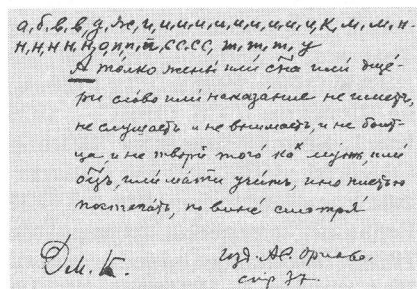 а, б, в, в, д, ж, и, и, и, и, и, и, и, и, и, К, м, м, н
н, н, н, н, о, п, п, й, сс, сс, т, т, т, у
А толко жены или сн̃а или дще́-
ри слово или наказа́ние не имет,
не слушает и не внимает, и не боит-
ца, и не твори́т того каᵏ муж, или
оц̃ъ, или мати учи́т, ино плетью
постегать, по вине смотря́
Дм. К.
изд. А.С. Орлова.
стр. 37.